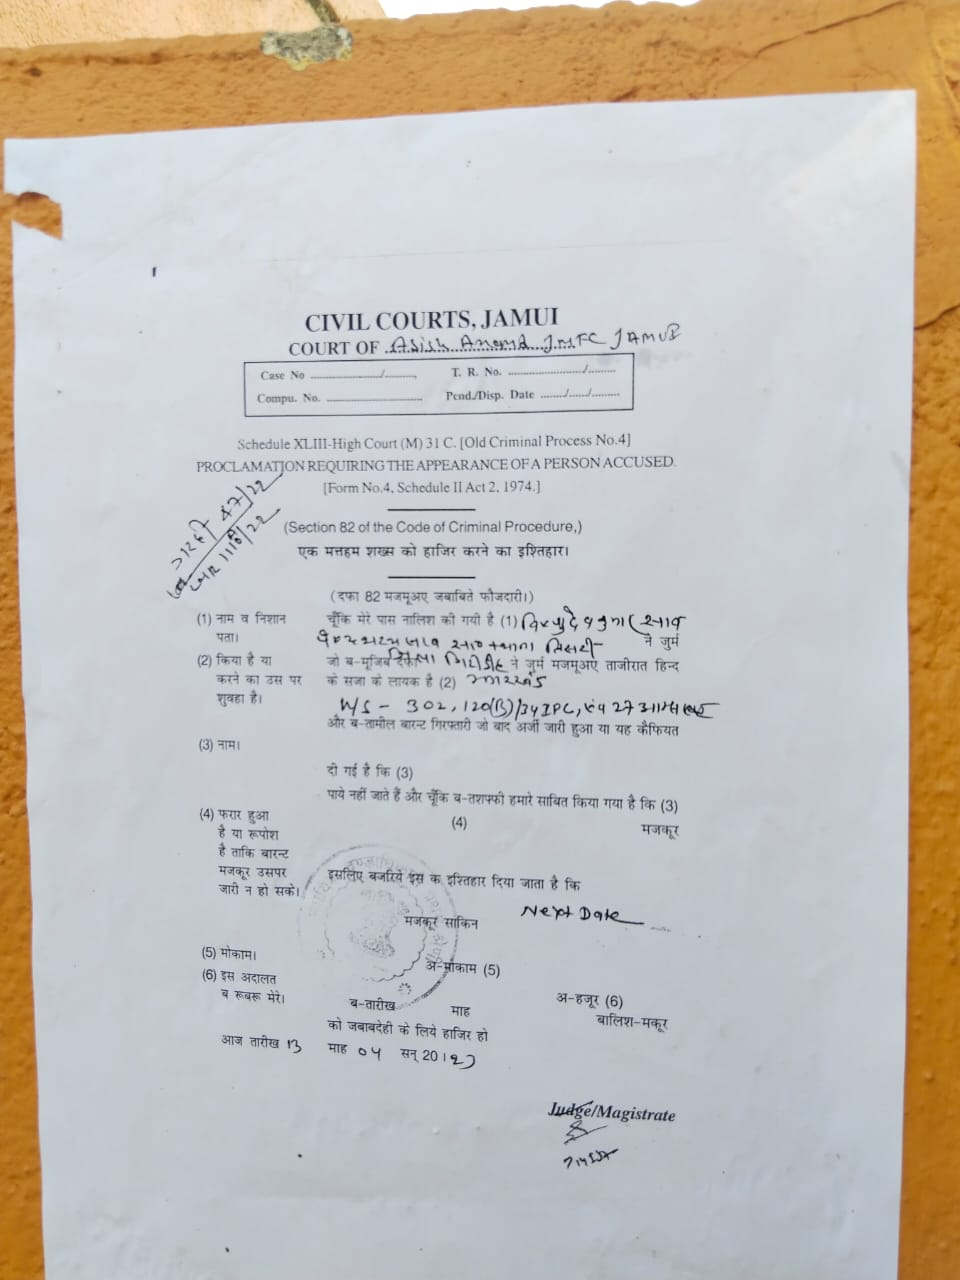 CIVIL COURTS, JAMUI
COURT OF Asish Anand JMFC JAMUI
Case No ................/.........,
T. R. No. ......................./........
Compu. No. ......................
Pend./Disp. Date ......./....../.........
Schedule XLIII-High Court (M) 31 C. [Old Criminal Process No.4]
PROCLAMATION REQUIRING THE APPEARANCE OF A PERSON ACCUSED.
[Form No.4, Schedule II Act 2, 1974.]
47/22
(Section 82 of the Code of Criminal Procedure,)
एक मत्तहम शख्स को हाजिर करने का इश्तिहार।
(दफा 82 मजमूअए जबाबिते फौजदारी।)
(1) नाम व निशान
पता।
चूँकि मेरे पास नालिश की गयी है (1)
ने जुर्म
(2) किया है या
करने का उस पर
शुवहा है।
जो ब-मूजिब दफा ने जुर्म मजमूअए ताजीरात हिन्द
के सजा के लायक है (2)
U/S - 302, 120(B)/34 IPC, एवं 27
और ब-तामील बारन्ट गिरफ्तारी जो बाद अर्जी जारी हुआ या यह कैफियत
(3) नाम।
दी गई है कि (3)
पाये नहीं जाते हैं और चूँकि ब-तशफ्फी हमारे साबित किया गया है कि (3)
(4) मजकूर
(4) फरार हुआ
है या रूपोश
है ताकि बारन्ट
मजकूर उसपर
जारी न हो सके।
इसलिए बजरिये इस क इश्तिहार दिया जाता है कि
मजकूर साकिन
Next Date
(5) मोकाम।
अ-मोकाम (5)
(6) इस अदालत
ब रूबरू मेरे।
ब-तारीख माह
अ-हजूर (6)
बालिश-मकूर
को जबाबदेही के लिये हाजिर हो
आज तारीख 13 माह 04 सन् 20
Judge/Magistrate